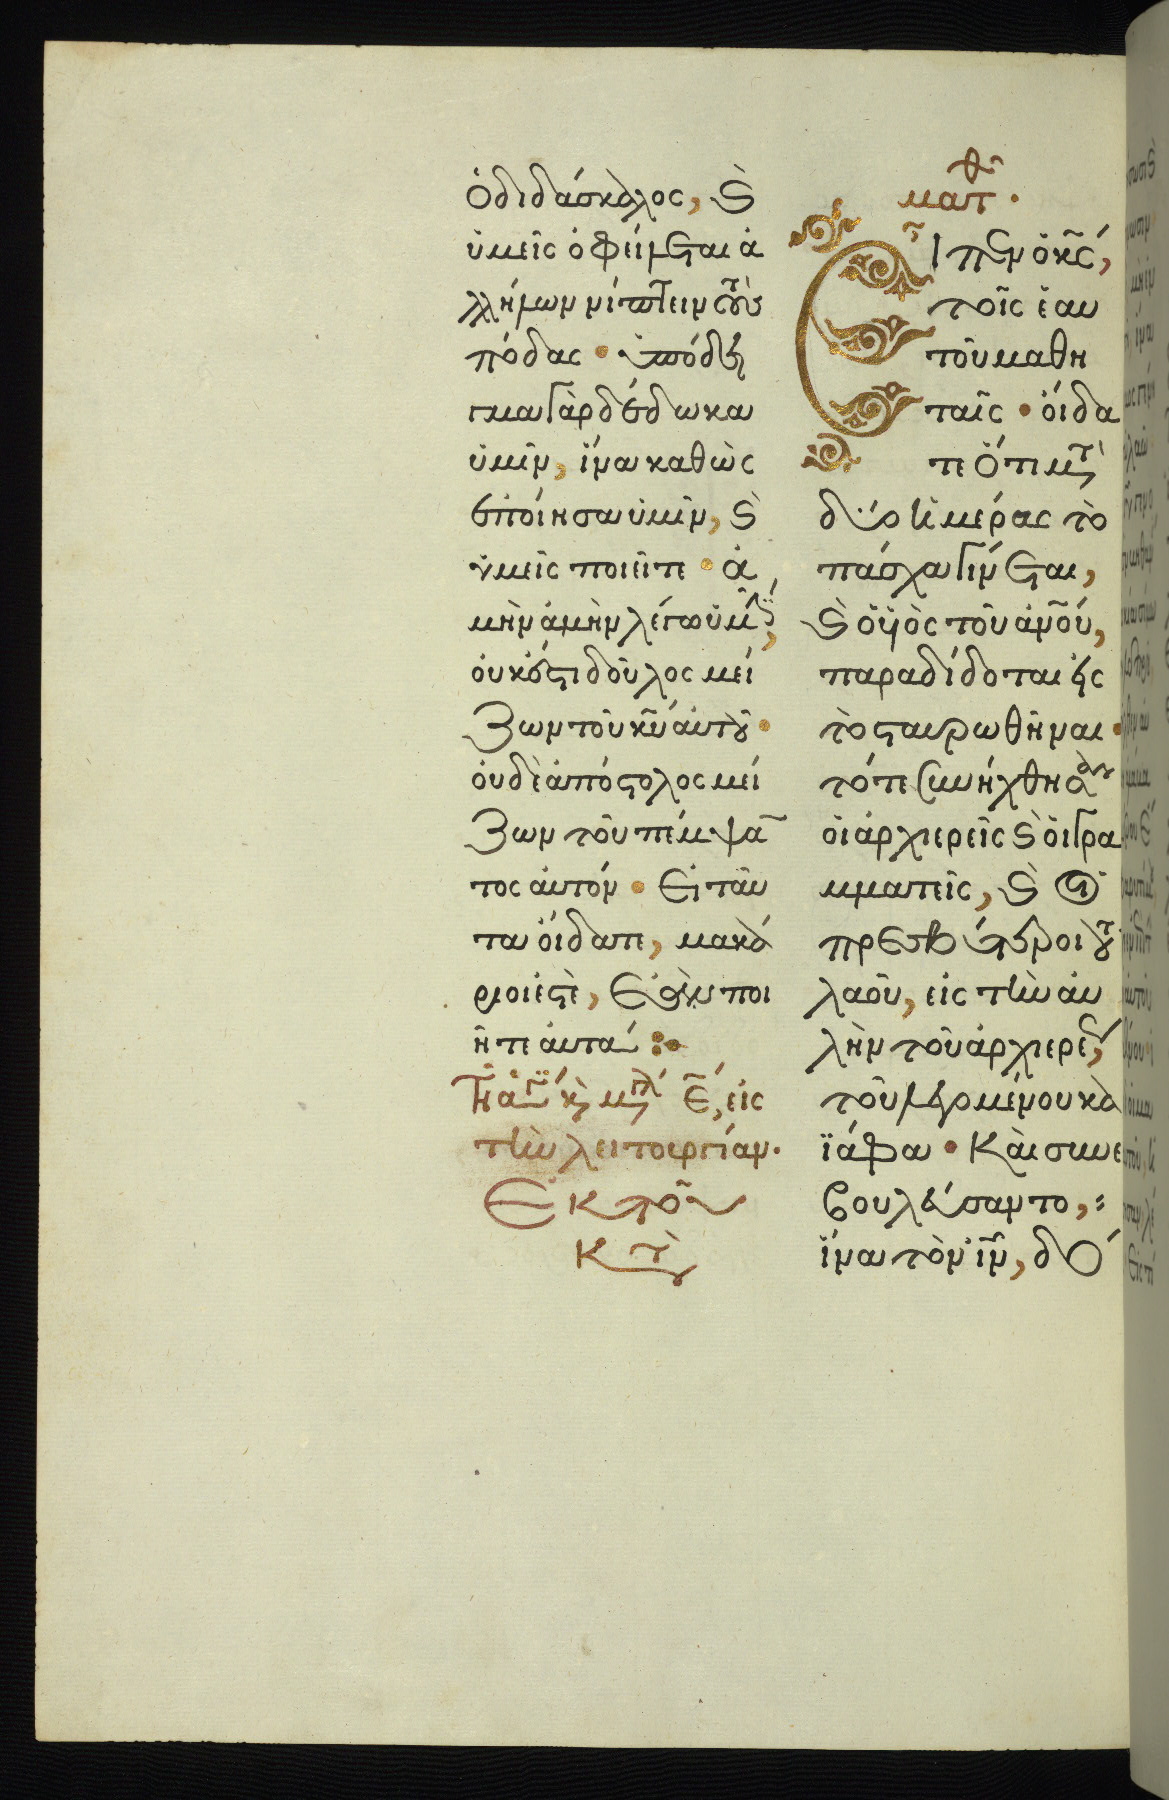 ὁ διδάσκαλος, ϗ
ὑμεῖς ὀφείλεται ἀ
λλήλων νίπτειν τοὺς
πόδας · ὑπόδει
γμα γὰρ δέδωκα
ὑμῖν, ἵνα καθὼς
ἐποίησα ὑμῖν, ϗ
ὑμεῖς ποιεῖτε · ἀ
μὴν ἀμὴν λέγω ὑμῖν,
οὐκ ἔστι δοῦλος μεί
ζων τοῦ κῦ αὐτοῦ ·
οὐδὲ ἀπόστολος μεί
ζων τοῦ πέμψαν
τος αὐτόν · Εἰ ταῦ
τα οἴδατε, μακά
ριοί ἐστὲ, ἐὰν ποι
ῆτε αὐτά :·
Τῆ ἁγ κ μγλ ε, εἰς
τὴν λειτουργίαν.
Ἐκ τοῦ
κτ
ματθ.
Εἶπεν ὁ κς,
τοῖς ἑαυ
τοῦ μαθη
ταῖς · οἴδα
τε ὅτι μετὰ
δύο ἡμέρας τὸ
πάσχα γίνεται,
ϗ ὁ υἱὸς τοῦ ἀνου,
παραδίδοται εἰς
τὸ σταυρωθῆναι ·
τότε συνήχθησαν
οἱ ἀρχιερεῖς ϗ οἱ γρα
μματεῖς, ϗ οἱ
πρεσβύτεροι τοῦ
λαοῦ, εἰς τὴν αὐ
λὴν τοῦ ἀρχιερέως,
τοῦ λεγομένου κα
ϊάφα · Καὶ συνε
βουλεύσαντο,
ἵνα τὸν ἰν, δό